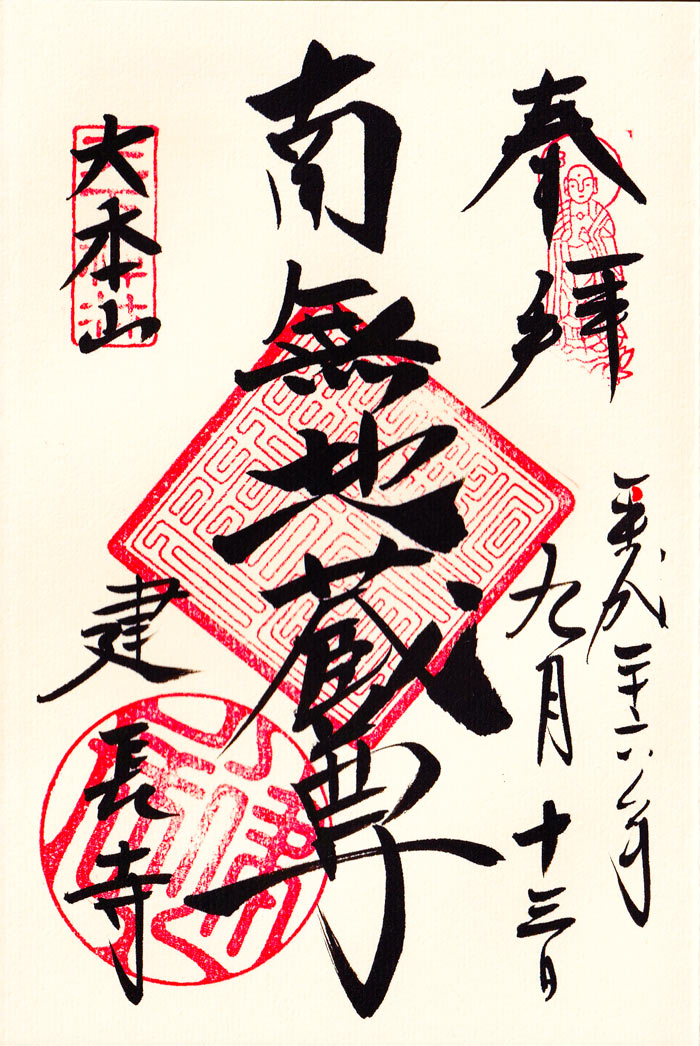 奉拝
平成二十六年
九月十三日
南無地蔵尊
大本山
建長寺